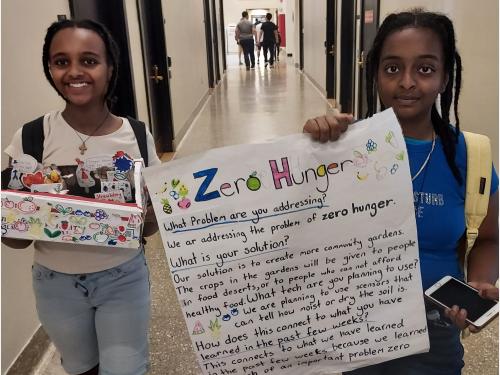 Zero Hunger
What Problem are you addressing?
We ar addressing the problem of zero hunger.
What is your solution?
Our solution is to create more community gardens.
The crops in the gardens will be given to people
in food deserts, or to people who can not afford
healthy food. What tech are you planning to use?
We are planning to use sensors that
can tell how moist or dry the soil is.
How does this connect to what you have
learned in the past few weeks?
This connects to what we have learned
in the past few weeks, because we learned
of an important problem zero